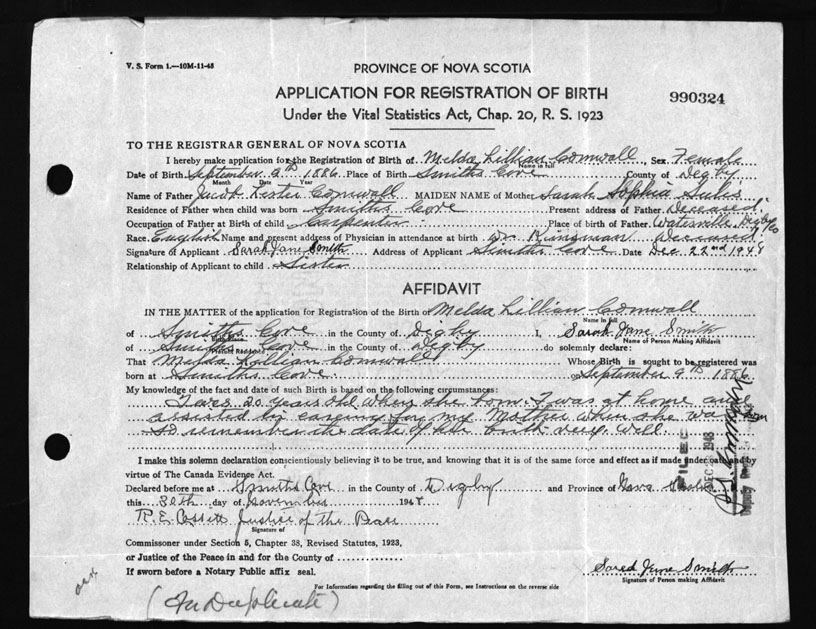 V. S. Form 1.—10M-11-45
PROVINCE OF NOVA SCOTIA
APPLICATION FOR REGISTRATION OF BIRTH
990324
Under the Vital Statistics Act, Chap. 20, R. S. 1923
TO THE REGISTRAR GENERAL OF NOVA SCOTIA
I hereby make application for the Registration of Birth of Melda Lillian Cornwall, Sex Female
Name in full
Date of Birth September 9th 1886 Place of Birth Smiths Cove County of Digby
Month Date Year
Name of Father Jacob Lester Cornwall MAIDEN NAME of Mother Sarah Sophia Sulis
Residence of Father when child was born Smiths Cove Present address of Father Deceased
Occupation of Father at Birth of child Carpenter Place of birth of Father Waterville Digby Co
Race English Name and present address of Physician in attendance at birth Dr. Kingman Deceased
Signature of Applicant Sarah Jane Smith Address of Applicant Smiths Cove Date Dec 22nd 1948
Relationship of Applicant to child Sister
AFFIDAVIT
IN THE MATTER of the application for Registration of the Birth of Melda Lillian Cornwall
Name in full
of Smiths Cove in the County of Digby I, Sarah Jane Smith
Birth Place Name of Person Making Affidavit
of Smiths Cove in the County of Digby do solemnly declare:
Present Residence
That Melda Lillian Cornwall Whose Birth is sought to be registered was
born at Smiths Cove on September 9th 1886
My knowledge of the fact and date of such Birth is based on the following circumstances:
I was 20 years old when she born. I was at home and
assisted by careing for my Mother when she was born
So remember the date of her birth very well.
I make this solemn declaration conscientiously believing it to be true, and knowing that it is of the same force and effect as if made under oath and by
virtue of The Canada Evidence Act.
Declared before me at Smiths Cove in the County of Digby and Province of Nova Scotia
this 30th day of November 1948
R. E. Cossett Justice of the Peace
Signature of
Commissioner under Section 5, Chapter 38, Revised Statutes, 1923,
or Justice of the Peace in and for the County of
If sworn before a Notary Public affix seal.
Sared Jane Smith
Signature of Person making Affidavit
For Information regarding the filling out of this Form, see Instructions on the reverse side
(In Duplicate)
FILED
1948